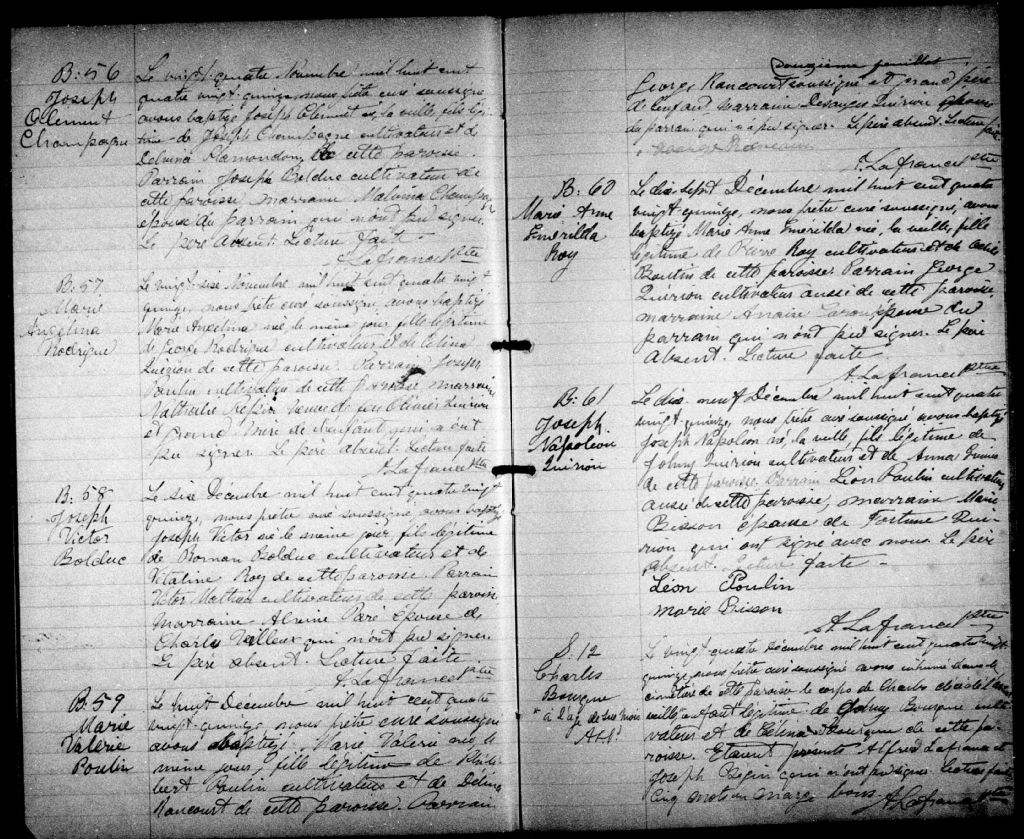 B: 56
Joseph
Clement
Champagne
Le vingt-quatre Novembre mil huit cent
quatre vingt quinze, nous prêtre curé soussigné
avons baptisé Joseph Clement né, la veille, fils légi
time de Joseph Champagne cultivateur et de
Delvina Plamondon de cette paroisse.
Parrain Joseph Bolduc cultivateur de
cette paroisse marraine Malvina Champagne
épouse du parrain qui n'ont pu signer.
Le père absent. Lecture faite
A. Lafrance Ptre
B: 57
Marie
Angelina
Rodrigue
Le vingt-six Novembre mil huit cent quatre vingt
quinze, nous prêtre curé soussigné avons baptisé
Marie Angelina née le même jour fille légitime
de George Rodrigue cultivateur et de Célina
Quirion de cette paroisse. Parrain Joseph
Poulin cultivateur de cette Paroisse marraine
Nathalie veuve de feu Olivier Quirion
et Grand Mère de l'enfant qui n'ont
pu signer. Le père absent. Lecture faite
A. Lafrance Ptre
B: 58
Joseph
Victor
Bolduc
Le six Décembre mil huit cent quatre vingt
quinze, nous prêtre curé soussigné avons baptisé
Joseph Victor né le même jour fils légitime
de Roman Bolduc cultivateur et de
Vitaline Roy de cette paroisse. Parrain
Victor Mathieu cultivateur de cette paroisse
Marraine Paré épouse de
Charles Veilleux qui n'ont pu signer.
Le père absent. Lecture faite
A. Lafrance Ptre
B: 59
Marie
Valerie
Poulin
Le huit Décembre mil huit cent quatre
vingt quinze, nous prêtre curé soussigné
avons baptisé Marie Valerie née le
même jour, fille légitime de Phili
bert Poulin cultivateur et de Délina
Rancourt de cette paroisse. Parrain
Douzième feuillet
George Rancourt soussigné et grand père
de l'enfant marraine Quirion épouse
du parrain qui n'a pu signer. Le père absent. Lecture faite
George Rancourt
A. Lafrance Ptre
B: 60
Marie Anne
Emérilda
Roy
Le dix-sept Décembre mil huit cent quatre
vingt quinze, nous prêtre curé soussigné, avons
baptisé Marie Anne Emérilda née, la veille, fille
légitime de Pierre Roy cultivateur et de
Boutin de cette paroisse. Parrain George
Quirion cultivateur aussi de cette paroisse,
marraine épouse du
parrain qui n'ont pu signer. Le père
absent. Lecture faite.
A. Lafrance Ptre
B: 61
Joseph
Napoléon
Quirion
Le dix-neuf Décembre mil huit cent quatre
vingt quinze, nous prêtre curé soussigné avons baptisé
Joseph Napoléon né, la veille, fils légitime de
Johny Quirion cultivateur et de Anna
de cette paroisse. Parrain Léon Poulin cultivateur
aussi de cette paroisse, marraine Marie
Bisson épouse de Fortuna Qui-
rion qui ont signé avec nous. Le père
absent. Lecture faite -
Léon Poulin
Marie Bisson
A. Lafrance Ptre
S: 12
Charles
Bourque
* à l'age de
Le vingt-quatre décembre mil huit cent quatre vingt
quinze, nous prêtre curé soussigné avons inhumé dans le
cimetière de cette paroisse le corps de Charles décédé
veille enfant légitime de Johny Bourque culti
vateur et de Célina Bourque de cette pa-
roisse. Etaient présents Alfred Lafrance et
Joseph Begin qui n'ont pu signer. Lecture faite
Cinq mots en marge bons A. Lafrance Ptre